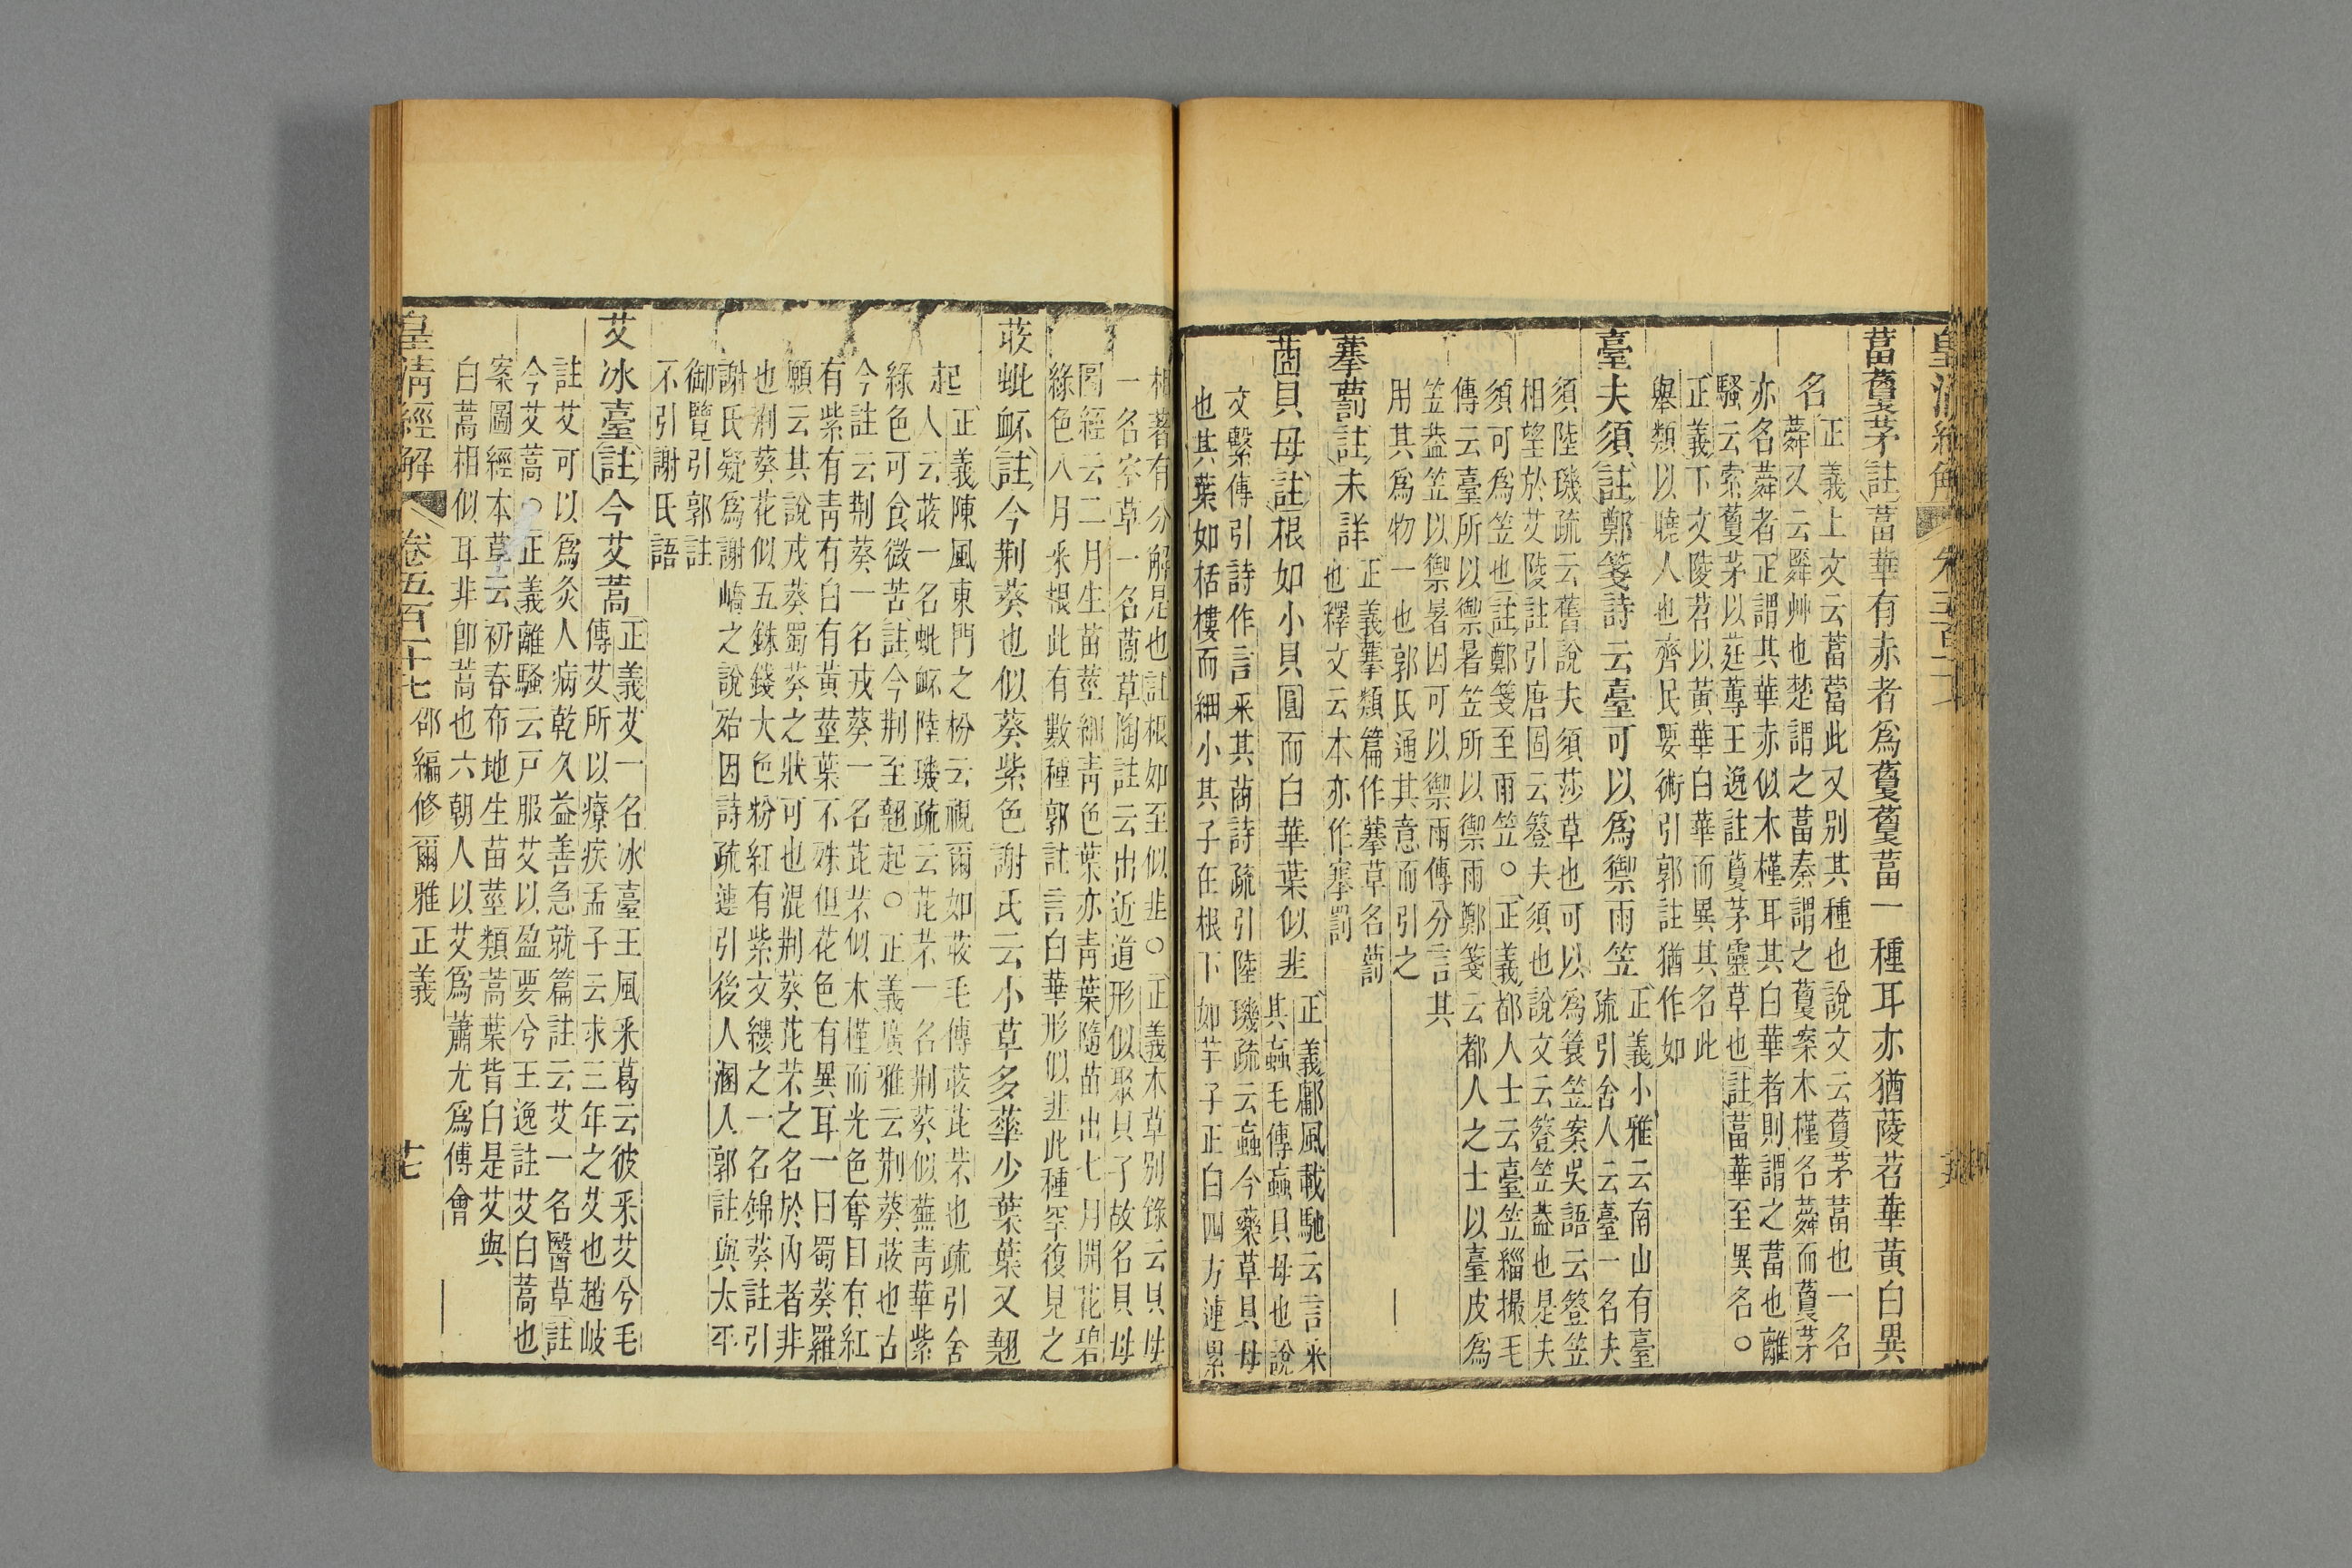 皇清經解
葍藑茅註葍華有赤者爲藑藑葍一種耳亦猶蔆苕華黃白異
名
正義上文云葍䔰此又别其種也說文云藑茅葍也一名
蕣又云䑞艸也楚謂之葍秦謂之藑案木槿名蕣而藑茅
亦名蕣者正謂其華赤似木槿耳其白華者則謂之葍也離
騷云索藑茅以莛蓴王逸註藑茅靈草也註葍華至異名○
正義下文陵苕以黃華白華而異其名此
舉類以曉人也齊民要術引郭註猶作如
臺夫須註鄭箋詩云臺可以爲禦雨笠
正義小雅云南山有臺
疏引舍人云臺一名夫
須陸璣疏云舊說夫須莎草也可以爲簑笠案吳語云簦笠
相望於艾陵註引唐固云簦夫須也說文云簦笠蓋也是夫
須可爲笠也註鄭箋至雨笠○正義都人士云臺笠緇撮毛
傳云臺所以禦暑笠所以禦雨鄭箋云都人之士以臺皮爲
笠蓋笠以禦暑因可以禦雨傳分言其
用其爲物一也郭氏通其意而引之
藆藅註未詳
正義藆類篇作藆草名藅
也釋文云本亦作搴罰
莔貝母註根如小貝圓而白華葉似韭
正義鄘風載馳云言采
其蝱毛傳蝱貝母也說
文繫傳引詩作言采其莔詩疏引陸璣疏云蝱今藥草貝母
也其葉如栝樓而細小其子在根下如芋子正白四方連累
相著有分解是也註根如至似韭○正義本草别錄云貝母
一名空草一名莔草陶註云出近道形似聚貝子故名貝母
圖經云二月生苗莖細靑色葉亦靑葉隨苗出七月開花碧
綠色八月采根此有數種郭註言白華形似韭此種罕復見之
荍蚍衃註今荆葵也似葵紫色謝氏云小草多華少葉葉又翹
起
正義陳風東門之枌云視爾如荍毛傳荍芘芣也疏引舍
人云荍一名蚍衃陸璣疏云芘芣一名荆葵似蕪靑華紫
綠色可食微苦註今荆至翹起○正義廣雅云荆葵荍也古
今註云荆葵一名戎葵一名芘芣似木槿而光色奪目有紅
有紫有靑有白有黃莖葉不殊但花色有異耳一曰蜀葵羅
願云其說戎葵蜀葵之狀可也混荆葵芘芣之名於內者非
也荆葵花似五銖錢大色粉紅有紫文縷之一名錦葵註引
謝氏疑爲謝嶠之說殆因詩疏連引後人溷入郭註與太平
御覽引郭註
不引謝氏語
艾冰臺註今艾蒿
正義艾一名冰臺王風采葛云彼采艾兮毛
傳艾所以療疾孟子云求三年之艾也趙岐
註艾可以爲灸人病乾久益善急就篇註云艾一名醫草註
今艾蒿○正義離騷云戸服艾以盈要兮王逸註艾白蒿也
案圖經本草云初春布地生苗莖類蒿葉背白是艾與
白蒿相似耳非卽蒿也六朝人以艾爲蕭尤爲傅會
皇清經解 卷五百二十七 邵編修爾雅正義